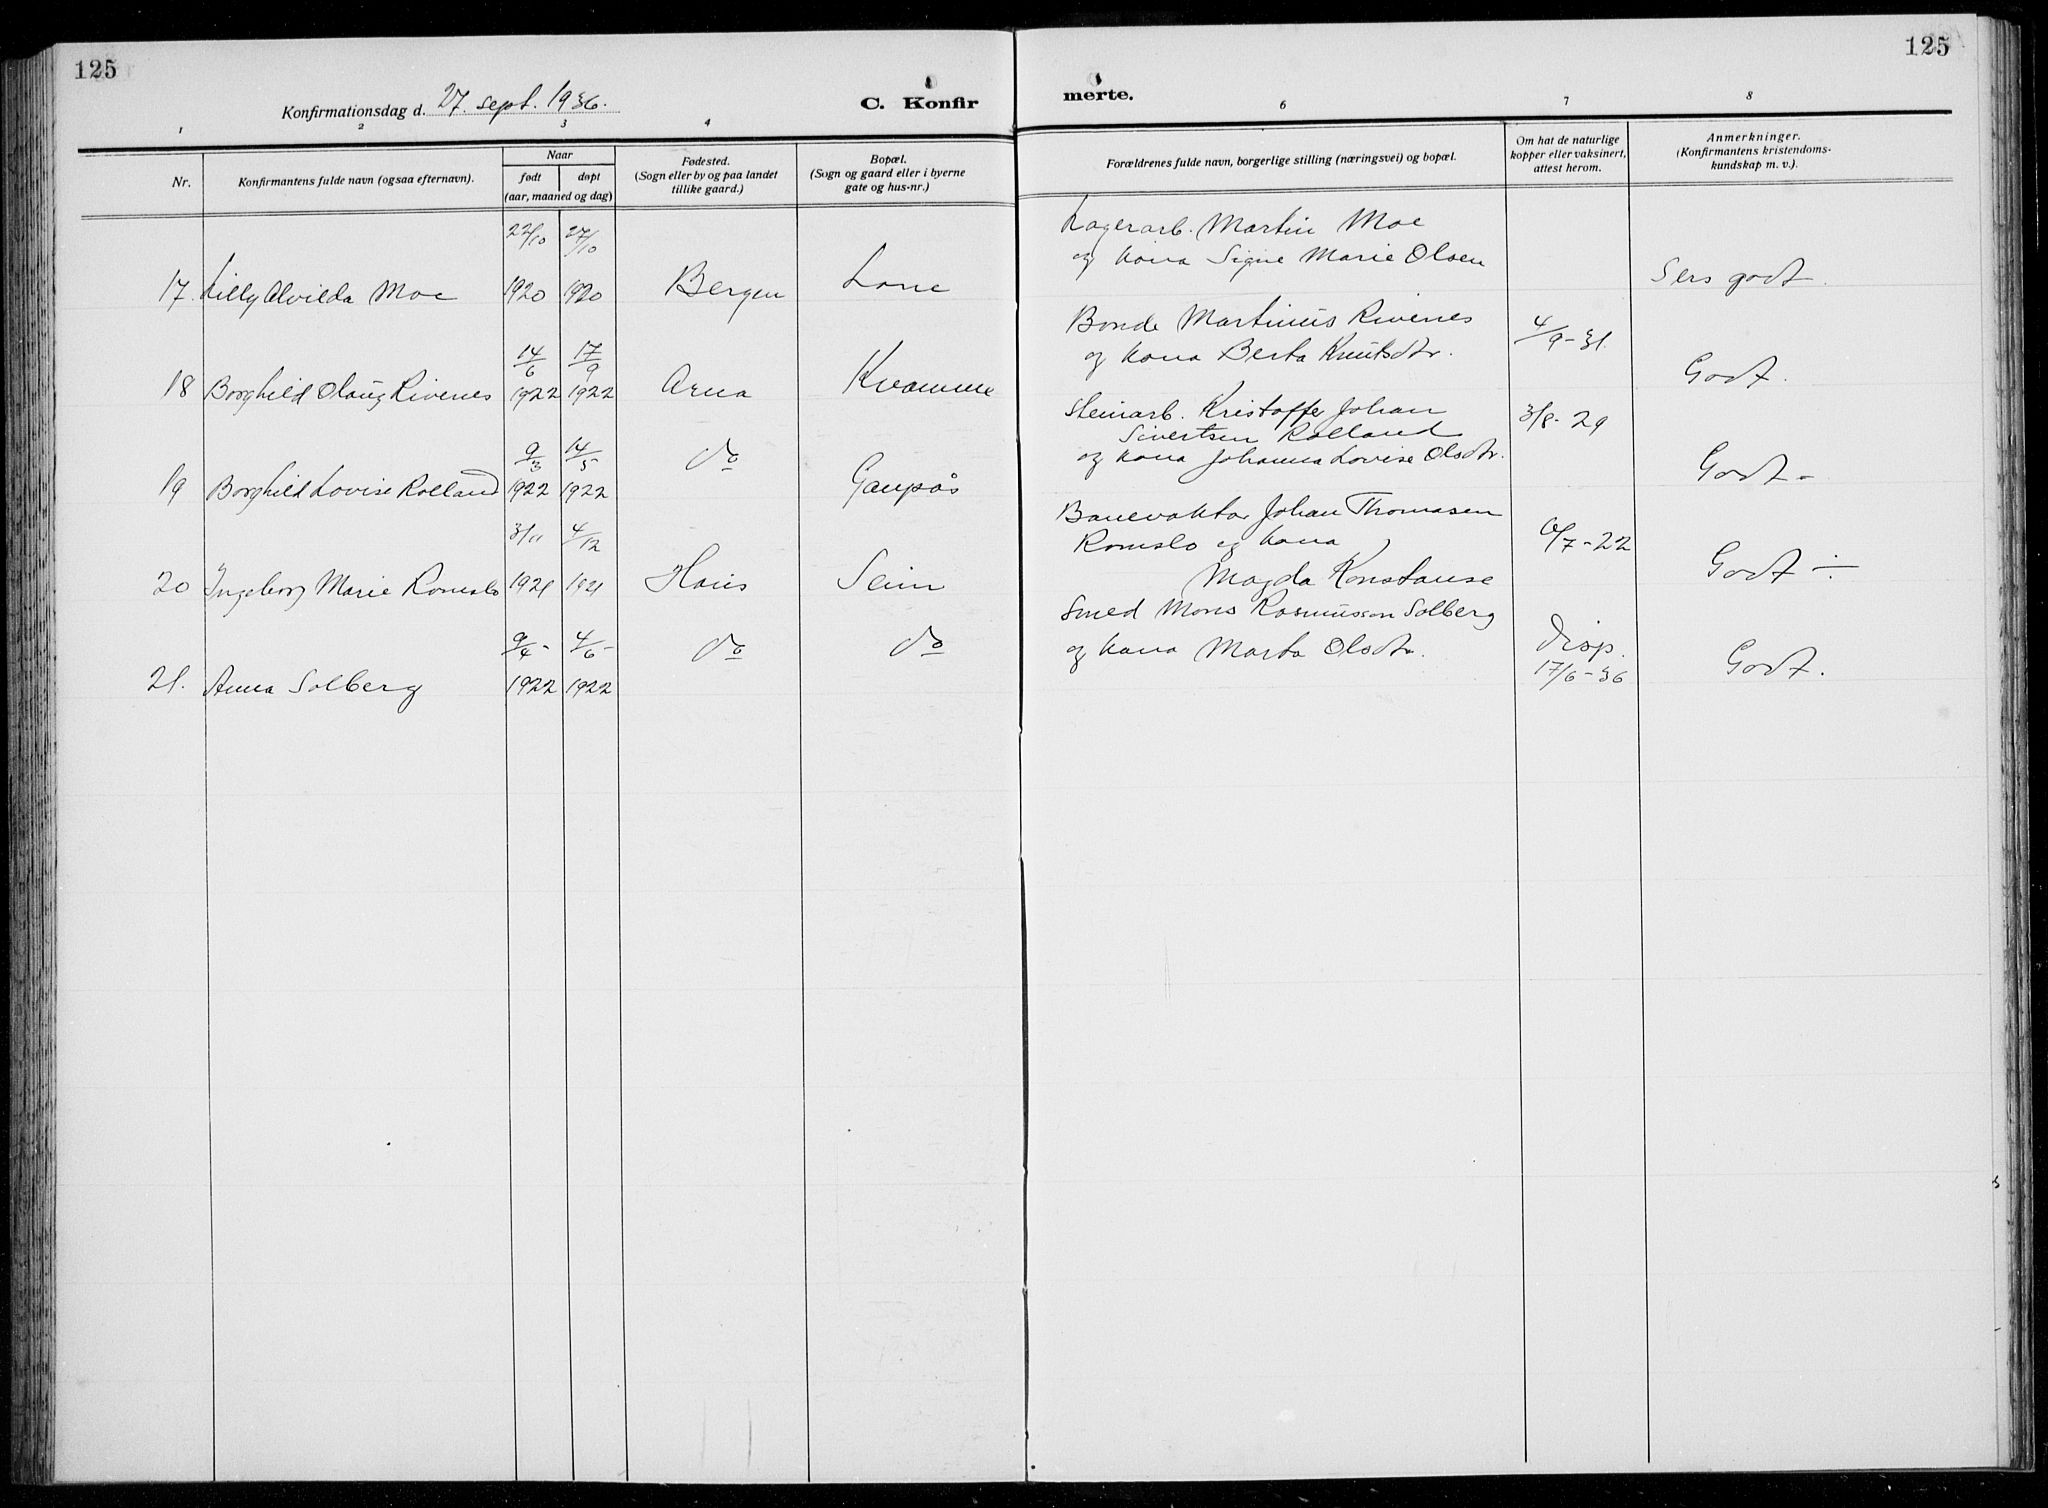 125
125
Konfirmationsdag d. 27. sept. 1936.
C. Konfir
merte.
1 2 3 4 6 7 8
Nr.
Konfirmantens fulde navn (ogsaa efternavn).
Naar
født
døpt
(aar, maaned og dag)
Fødested.
(Sogn eller by og paa landet
tillike gaard.)
Bopæl.
(Sogn og gaard eller i byerne
gate og hus-nr.)
Forældrenes fulde navn, borgerlige stilling (næringsvei) og bopæl.
Om hat de naturlige
kopper eller vaksinert,
attest herom.
Anmerkninger.
(Konfirmantens kristendoms-
kundskap m. v.).
22/10 27/10
Lagerarb. Martin Moe
og kona Signe Marie Olsen
17. Lilly Alvilda Moe 1920 1920 Bergen Lone
Sers godt.
Bonde Martinius Rivenes
og kona Berta Knutsdtr.
4/9-31
14/6 17/9
18 Borghild Olaug Rivenes 1922 1922 Arna Kvamme
Godt.
Steinarb. Kristoffer Johan
Sivertsen Rolland
og kona Johanna Lovise Olsdtr.
3/8-29
9/3 14/5 do
19 Borghild Lovise Rolland 1922 1922 Gaupås
Godt -
Banevaktar Johan Thomasen
Romslo og kona
Magda Konstanse
/7-22
3/11 4/12
20 Ingeborg Marie Romslo 1921 1921 Haus Seim
Godt ÷
Smed Mons Rasmusson Solberg
og kona Marta Olsdtr.
Disp.
17/6-36
9/4- 4/6- do do
21. Anna Solberg 1922 1922
Godt.